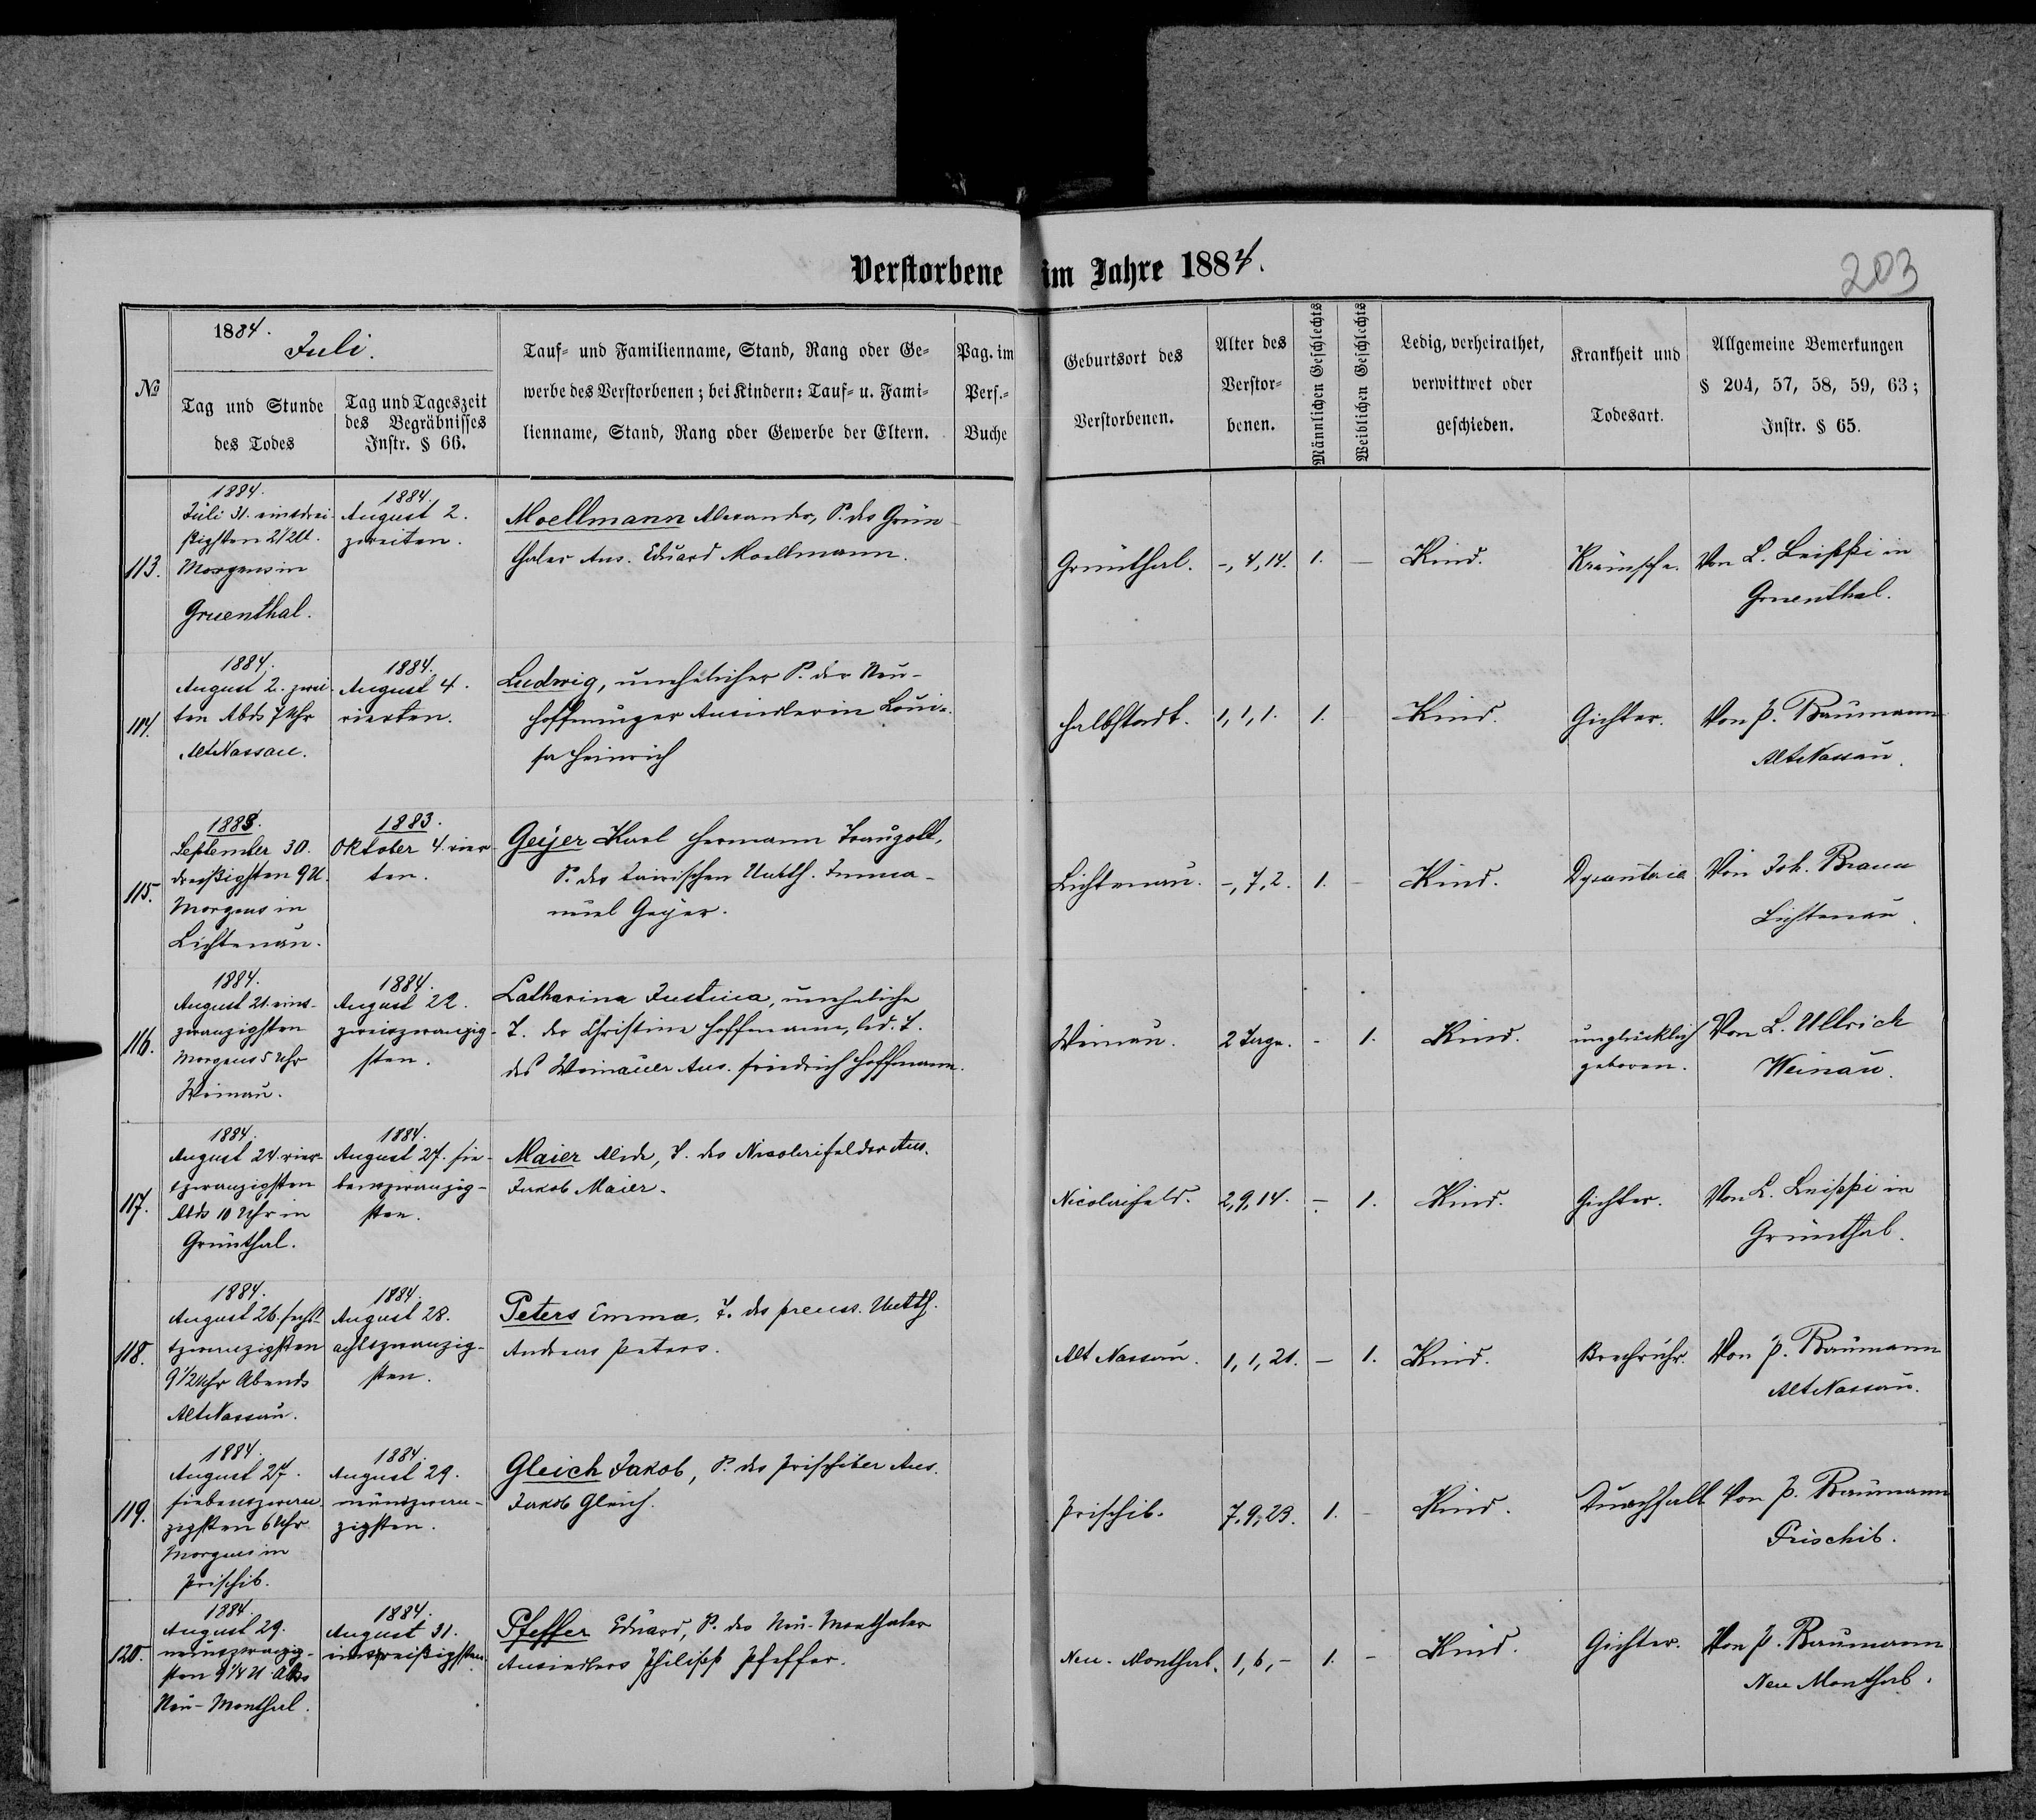 Verstorbene im Jahre 1884.
203
№
1884. Juli.
Tag und Stunde
des Todes
Tag und Tageszeit
des Begräbnisses
Instr. § 66.
Tauf- und Familienname, Stand, Rang oder Ge-
werbe des Verstorbenen; bei Kindern: Tauf- u. Fami-
lienname, Stand, Rang oder Gewerbe der Eltern.
Pag. im
Pers.-
Buche
Geburtsort des
Verstorbenen.
Alter des
Verstor-
benen.
Männlichen Geschlechts
Weiblichen Geschlechts
Ledig, verheirathet,
verwittwet oder
geschieden.
Krankheit und
Todesart.
Allgemeine Bemerkungen
§ 204, 57, 58, 59, 63;
Instr. § 65.
113.
1884.
Juli 31. einsdrei-
ßigsten 2½ U.
Morgens in
Gruenthal.
1884.
August 2.
zweiten.
Moellmann Alexander, S. des Grün-
thaler Ans. Eduard Moellmann.
Grünthal.
-, 4, 14.
1.
—
Kind.
Von L. Leippi in
Gruenthal.
114.
1884.
August 2. zwei-
ten Abds 7 Uhr
Alt Nassau.
1884.
August 4.
vierten.
Ludwig, unehelicher S. der Neu-
hoffnunger Ansiedlerin Loui-
sa Heinrich
Halbstadt.
1, 1, 1.
1.
-
Kind.
Gichter.
Von P. Baumann
Alt Nassau.
115.
1883.
September 30.
dreißigsten 9 U.
Morgens in
Lichtenau.
1883.
Oktober 4. vier-
ten.
Geijer Karl Hermann Traugott,
S. des Unterth. Imma-
nuel Geijer.
Lichtenau.
-, 7, 2.
1.
-
Kind.
Dysenteria
Von Joh. Braun
Lichtenau.
116.
1884.
August 21. eins-
zwanzigsten
Morgens 5 Uhr
Weinau.
1884.
August 22.
zweizwanzig-
sten.
Catharina Justina, uneheliche
T. der Christine Hoffmann, led. T.
des Weinauer Ans. Friedrich Hoffmann.
Weinau.
2 Tage.
-
1.
Kind.
unglücklich
geboren.
Von L. Ullrich
Weinau.
117.
1884.
August 24. vier-
tzwanzigsten
Abds 10 Uhr in
Grünthal.
1884.
August 27. sie-
benszwanzig-
sten.
Maier Alide, T. des Nicolaifelder Ans.
Jakob Maier.
Nicolaifeld.
2, 9, 14.
-
1.
Kind.
Gichter.
Von L. Leippi in
Grünthal.
118.
1884.
August 26. sechs-
tzwanzigsten
9½ Uhr Abends
Alt Nassau.
1884.
August 28.
achtszwanzig-
sten.
Peters Emma, T. des preuss. Unterth.
Andreas Peters.
Alt Nassau.
1, 1, 21.
-
1.
Kind.
Brechruhr.
Von P. Baumann
Alt Nassau.
119.
1884.
August 27.
siebenszwan-
zigsten 6 Uhr
Morgens in
Prischib.
1884.
August 29.
neunszwan-
zigsten.
Gleich Jakob, S. des Prischiber Ans.
Jakob Gleich.
Prischib.
7, 9, 23.
1.
-
Kind.
Durchfall
Von P. Baumann
Prischib.
120.
1884.
August 29.
neunszwanzig-
sten 9¼ U Abds
Neu-Monthal.
1884.
August 31.
einsdreißigsten.
Pfeffer Eduard, S. des Neu-Monthaler
Ansiedlers Philipp Pfeffer.
Neu-Monthal.
1, 6, -
1.
-
Kind.
Gichter.
Von P. Baumann
Neu Monthal.